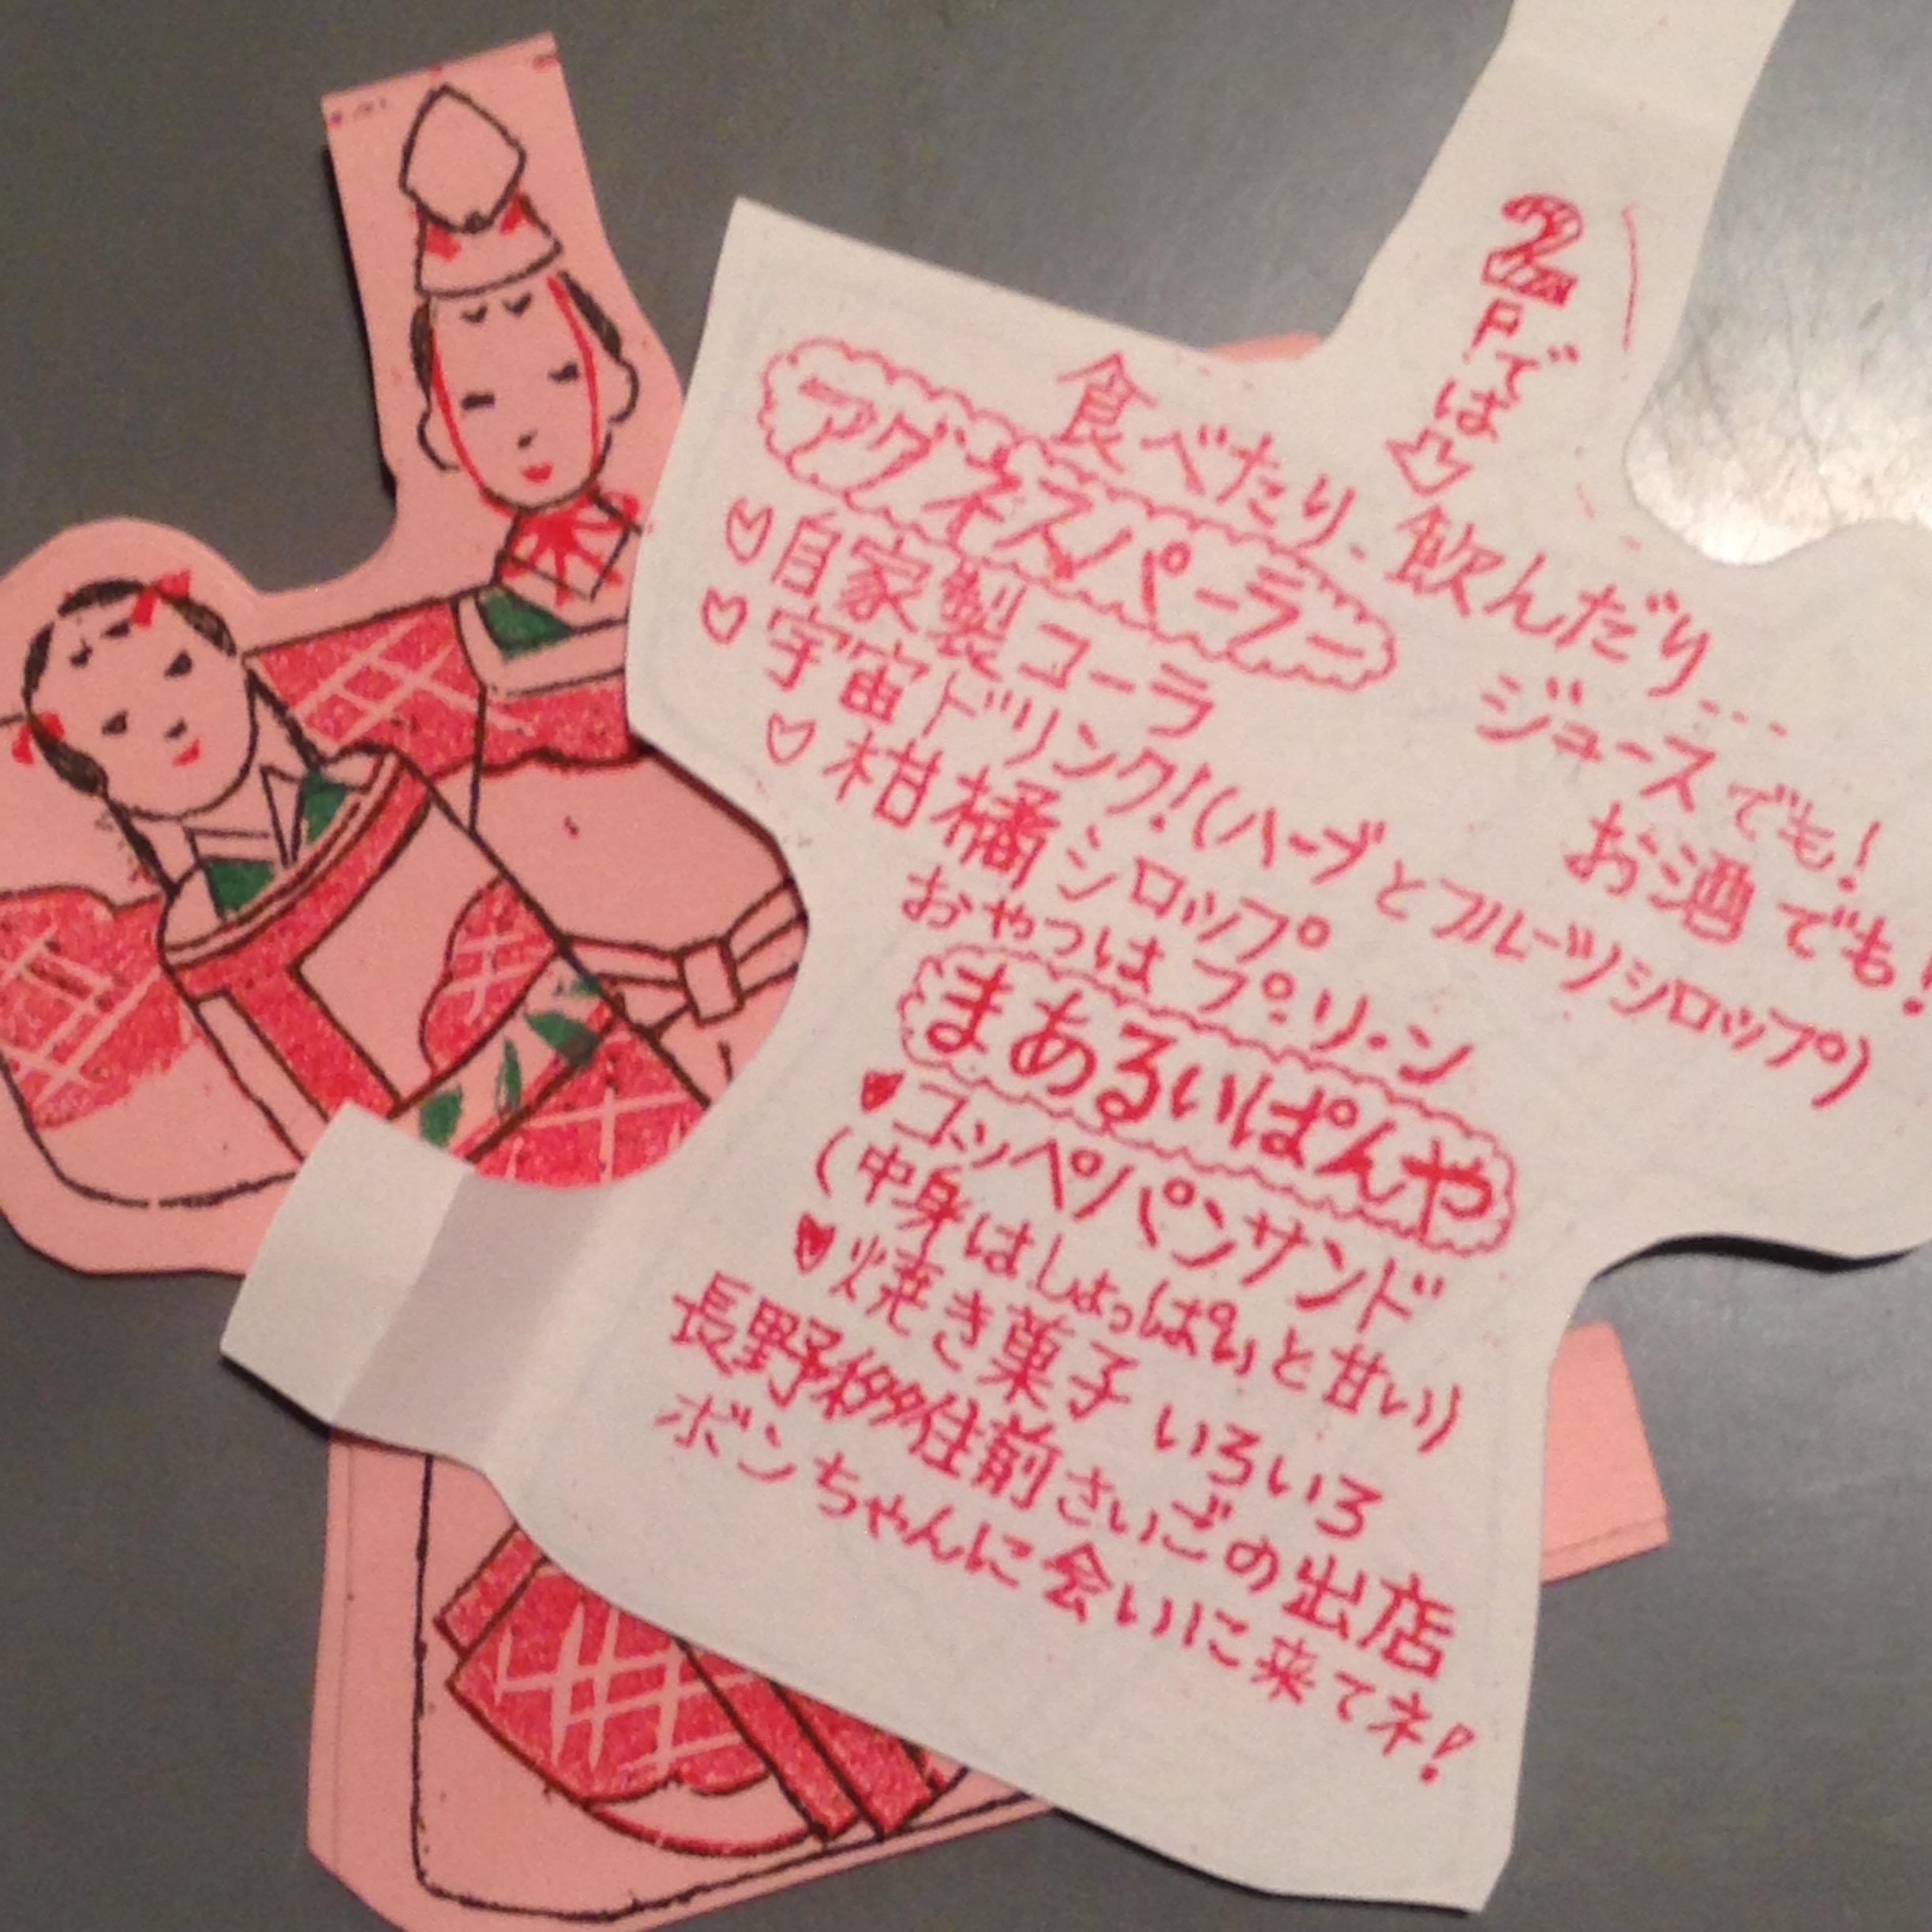 2Fでは
食べたり、飲んだり...
アグネスパーラー
ジュースでも!
お酒でも!
自家製コーラ
宇宙ドリンク!(ハーブとフルーツシロップ)
柑橘シロップ
おやつはプ・リ・ン
まあるいぱんや
コッペパンサンド
(中身はしょっぱいと甘い)
焼き菓子いろいろ
長野移住前さいごの出店
ボンちゃんに会いに来てネ!